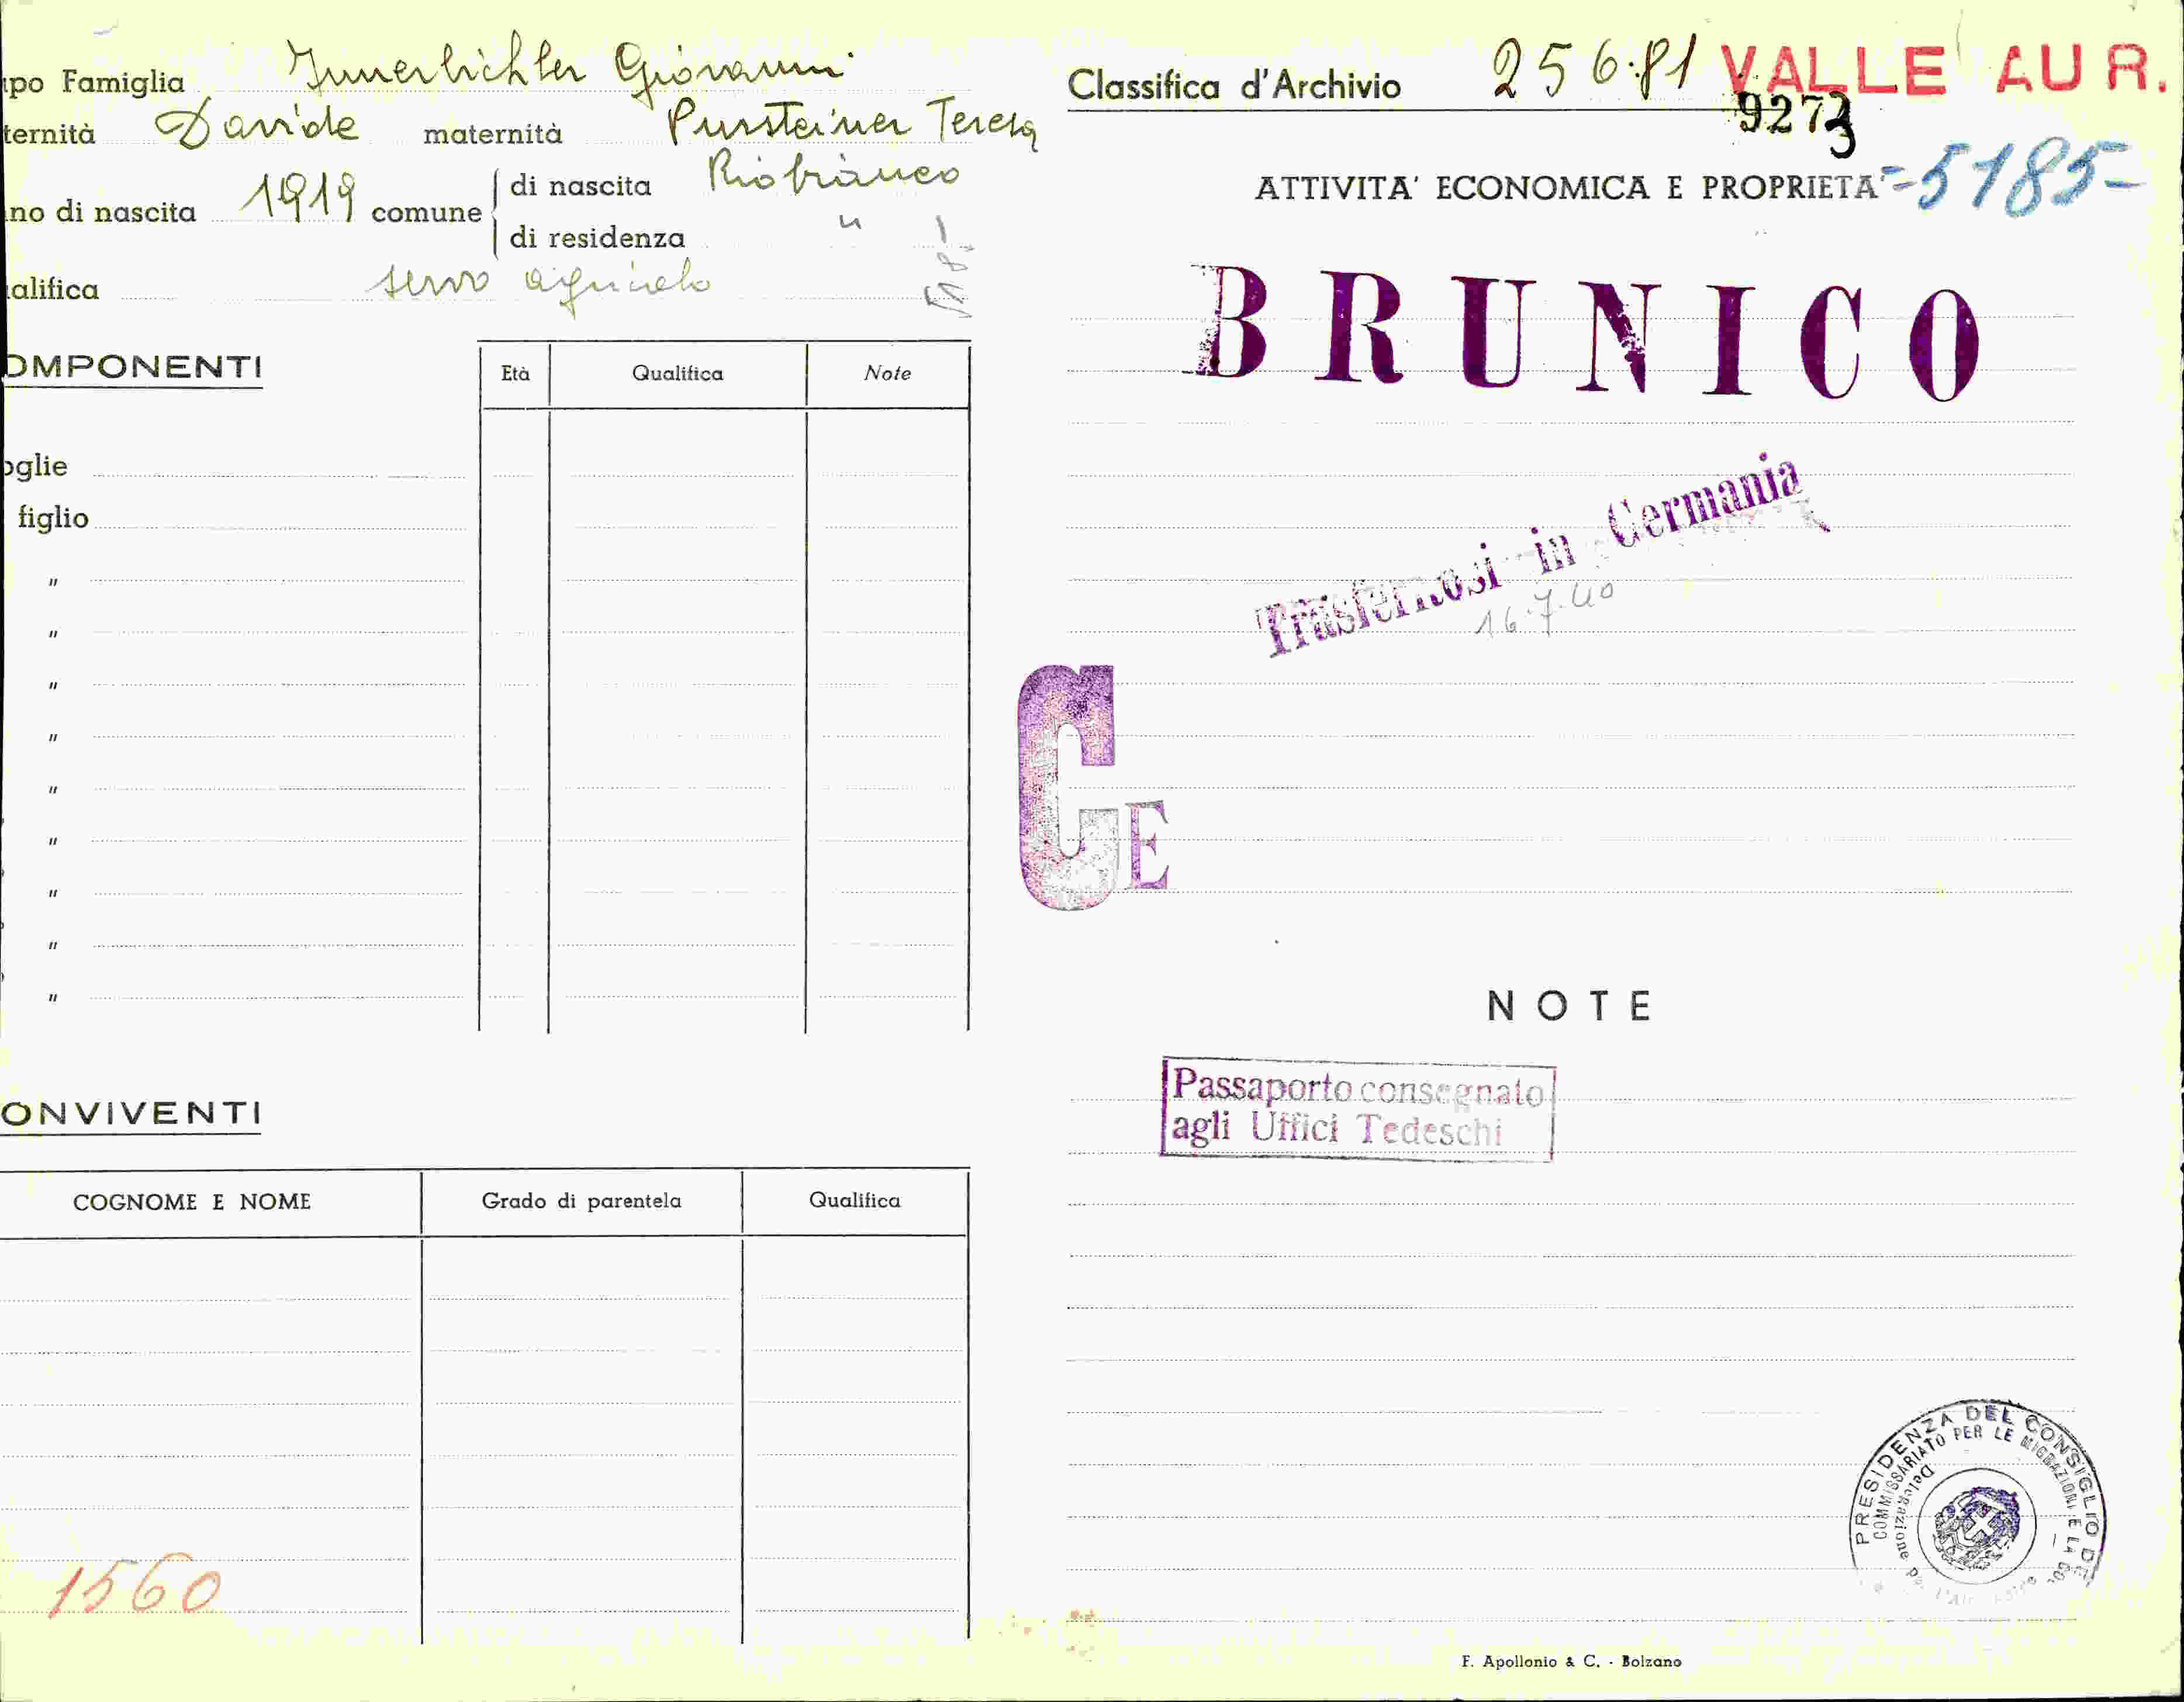 po Famiglia Innerbichler Giovanni
ternità Davide maternità Pursteiner Teresa
no di nascita 1919 comune di nascita Riobianco
di residenza "
alifica servo agricolo
5185
OMPONENTI
Età Qualifica Note
oglie
figlio
"
"
"
"
"
"
"
"
"
ONVIVENTI
COGNOME E NOME Grado di parentela Qualifica
1560
Classifica d'Archivio 256.81 VALLE AUR.
9273
ATTIVITA' ECONOMICA E PROPRIETA' =5185=
BRUNICO
Trasferitosi in Germania
16.7.40
CE
NOTE
Passaporto consegnato
agli Uffici Tedeschi
PRESIDENZA DEL CONSIGLIO DE
COMMISSARIATO PER LE MIGRAZIONI E LA CO
Delegazione
F. Apollonio & C. - Bolzano